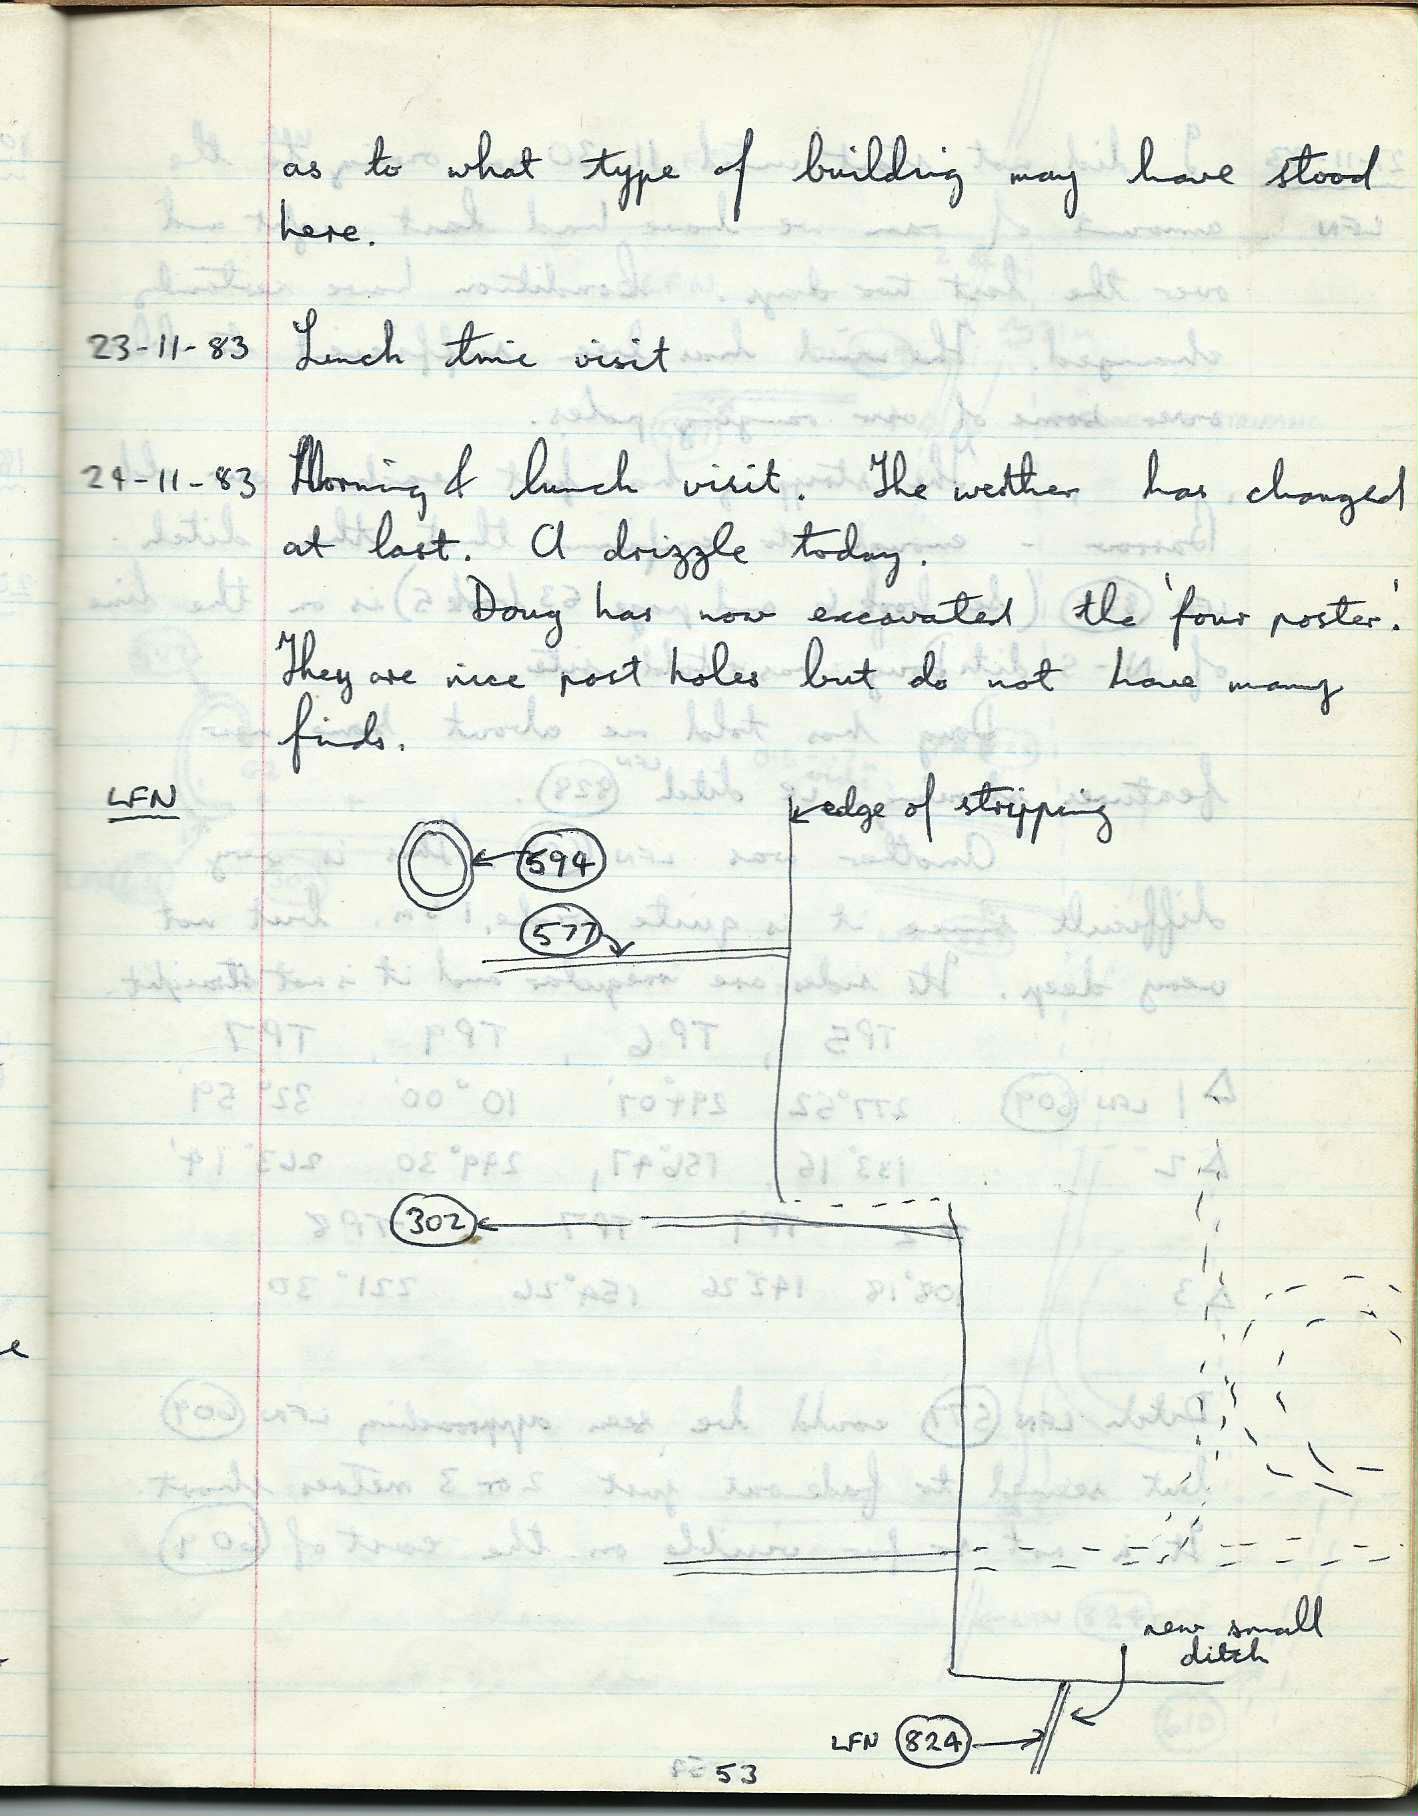 as to what type of building may have stood
here.
23-11-83 Lunch time visit
24-11-83 Morning & lunch visit. The weather has changed
at last. A drizzle today.
Doug has now excavated the 'four poster'.
They are nice post holes but do not have many
finds.
LFN
edge of stripping
594
577
302
new small
ditch
LFN 824
53